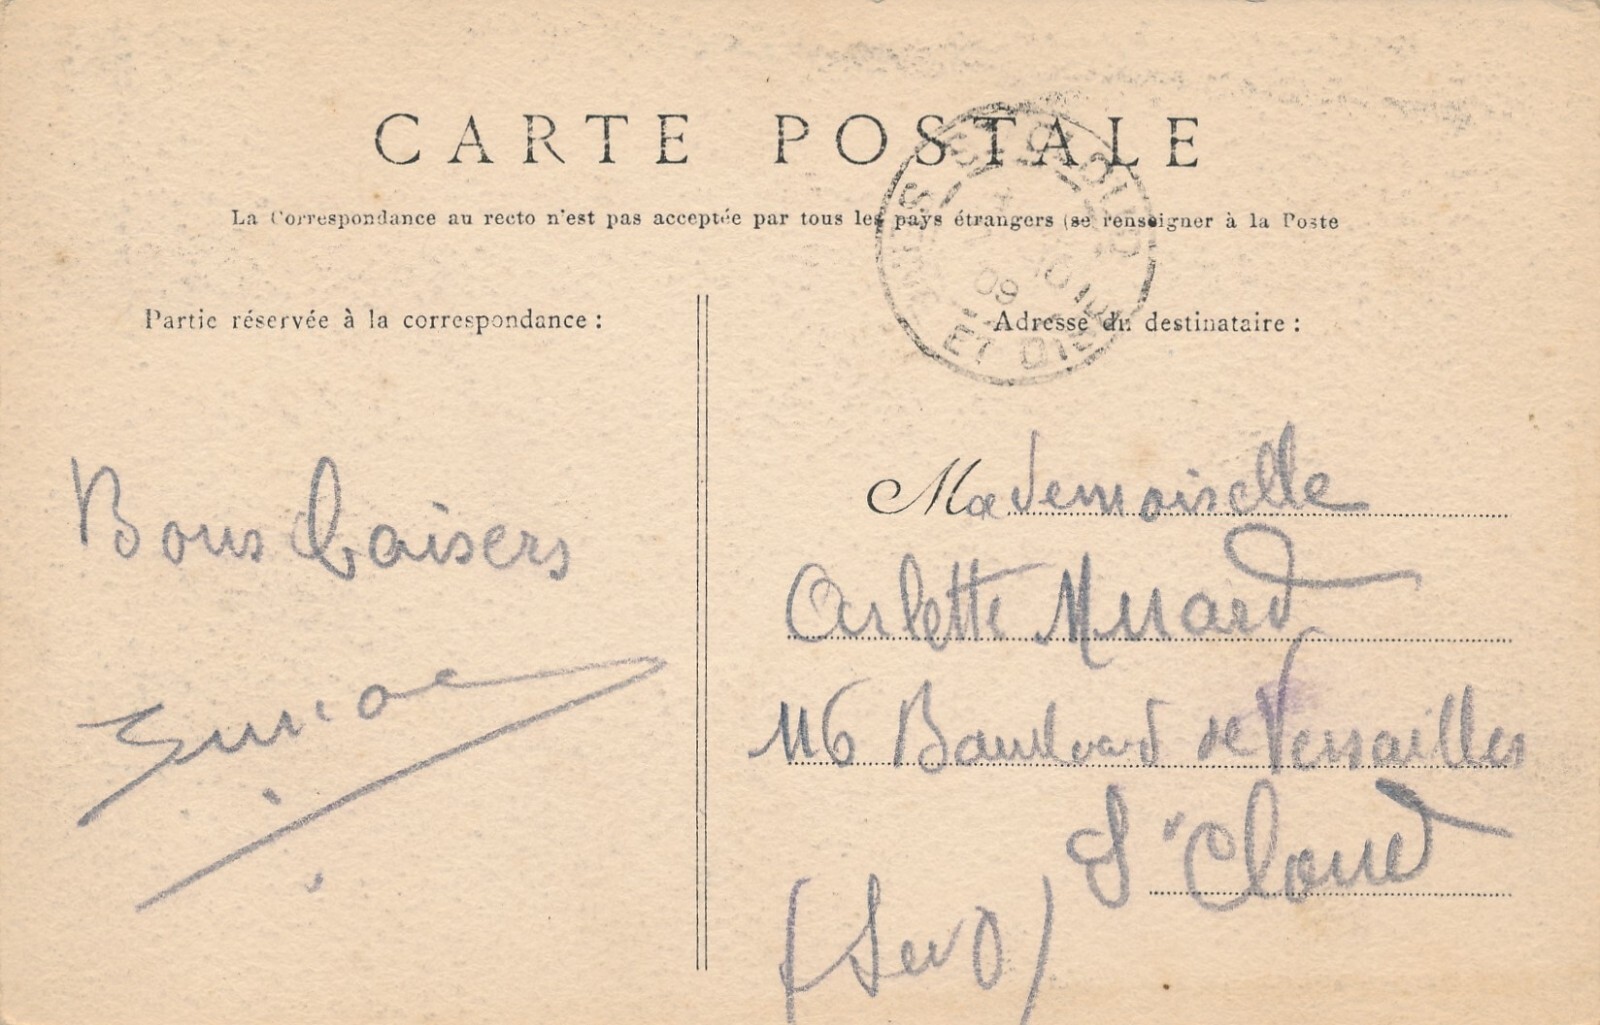 CARTE POSTALE
La Correspondance au recto n'est pas acceptée par tous les pays étrangers (se renseigner à la Poste
Partie réservée à la correspondance :
Adresse du destinataire :
Bons baisers
Mademoiselle
Arlette
116 Boulevard de Versailles
St Cloud
ST CLOUD
09
ET OISE